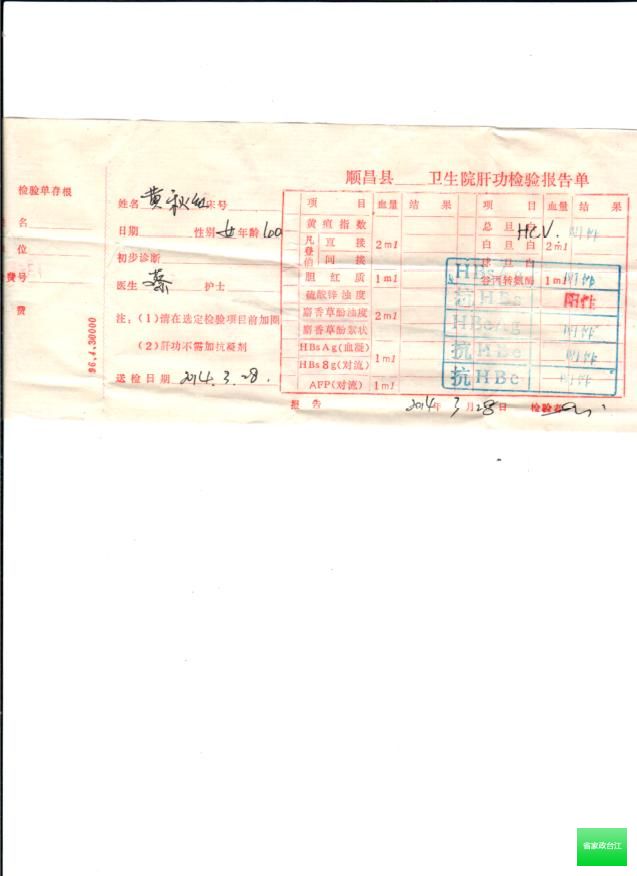 顺昌县 卫生院肝功检验报告单
检验单存根
名
位
费号
费
96.4.30000
姓名 黄秋 床号
日期 性别 女 年龄 60
初步诊断
医生 蔡 护士
注：(1)请在选定检验项目前加圈
(2)肝功不需加抗凝剂
送检日期 2014.3.28.
项 目 血量 结 果 项 目 血量 结 果
黄疸指数 总旦白 HCV. 阴性
凡登伯 直接 2ml 白旦白 2ml
间接 球旦白
胆红质 1ml 谷丙转氨酶 1ml 阴性
硫酸锌浊度
麝香草酚浊度 2ml
麝香草酚絮状
HBsAg(血凝) 1ml
HBsSg(对流)
AFP(对流) 1ml
HBsAg 阴性
抗HBs 阳性
HBeAg 阴性
抗HBe 阴性
抗HBc 阴性
报告 2014年 3月28日 检验者
省家政台江